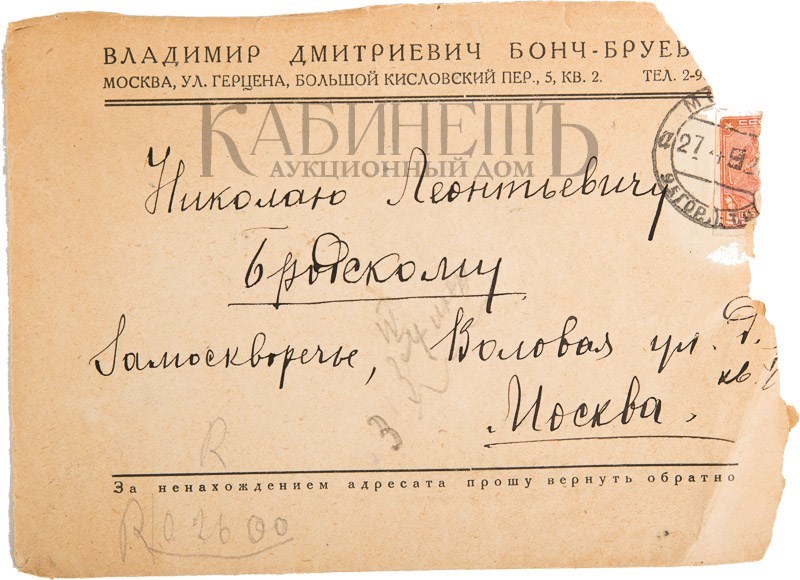 ВЛАДИМИР ДМИТРИЕВИЧ БОНЧ-БРУЕВ
МОСКВА, УЛ. ГЕРЦЕНА, БОЛЬШОЙ КИСЛОВСКИЙ ПЕР., 5, КВ. 2. ТЕЛ. 2-9
КАБИНЕТЪ
АУКЦИОННЫЙ ДОМ
27 4
Николаю Леонтьевичу
Бродскому
Замоскворечье, Воловая ул. д.
кв.
Москва.
З
R
За ненахождением адресата прошу вернуть обратно
R 0 2600